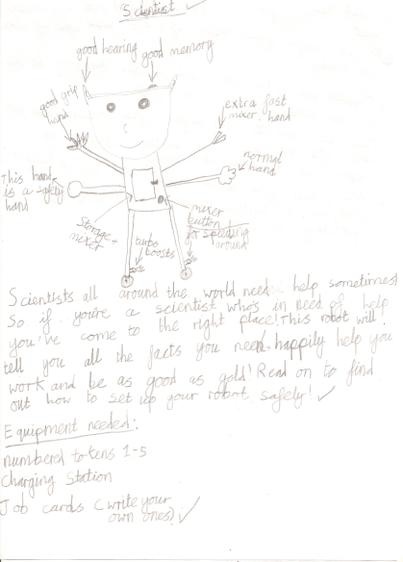 Scientist
good hearing good memory
good grip
hand
extra fast
mixer hand
normal
hand
This hand
is a safety
hand
Storage +
mixer
mixer
button
for speeding
around
turbo
boosts
Scientists all around the world need help sometimes
So if you're a scientist who's in need of help
you've come to the right place! This robot will
tell you all the facts you need happily help you
work and be as good as gold! Read on to find
out how to set up your robot safely!
Equipment needed:
numbered tokens 1-5
Charging Station
Job cards (write your
own ones)